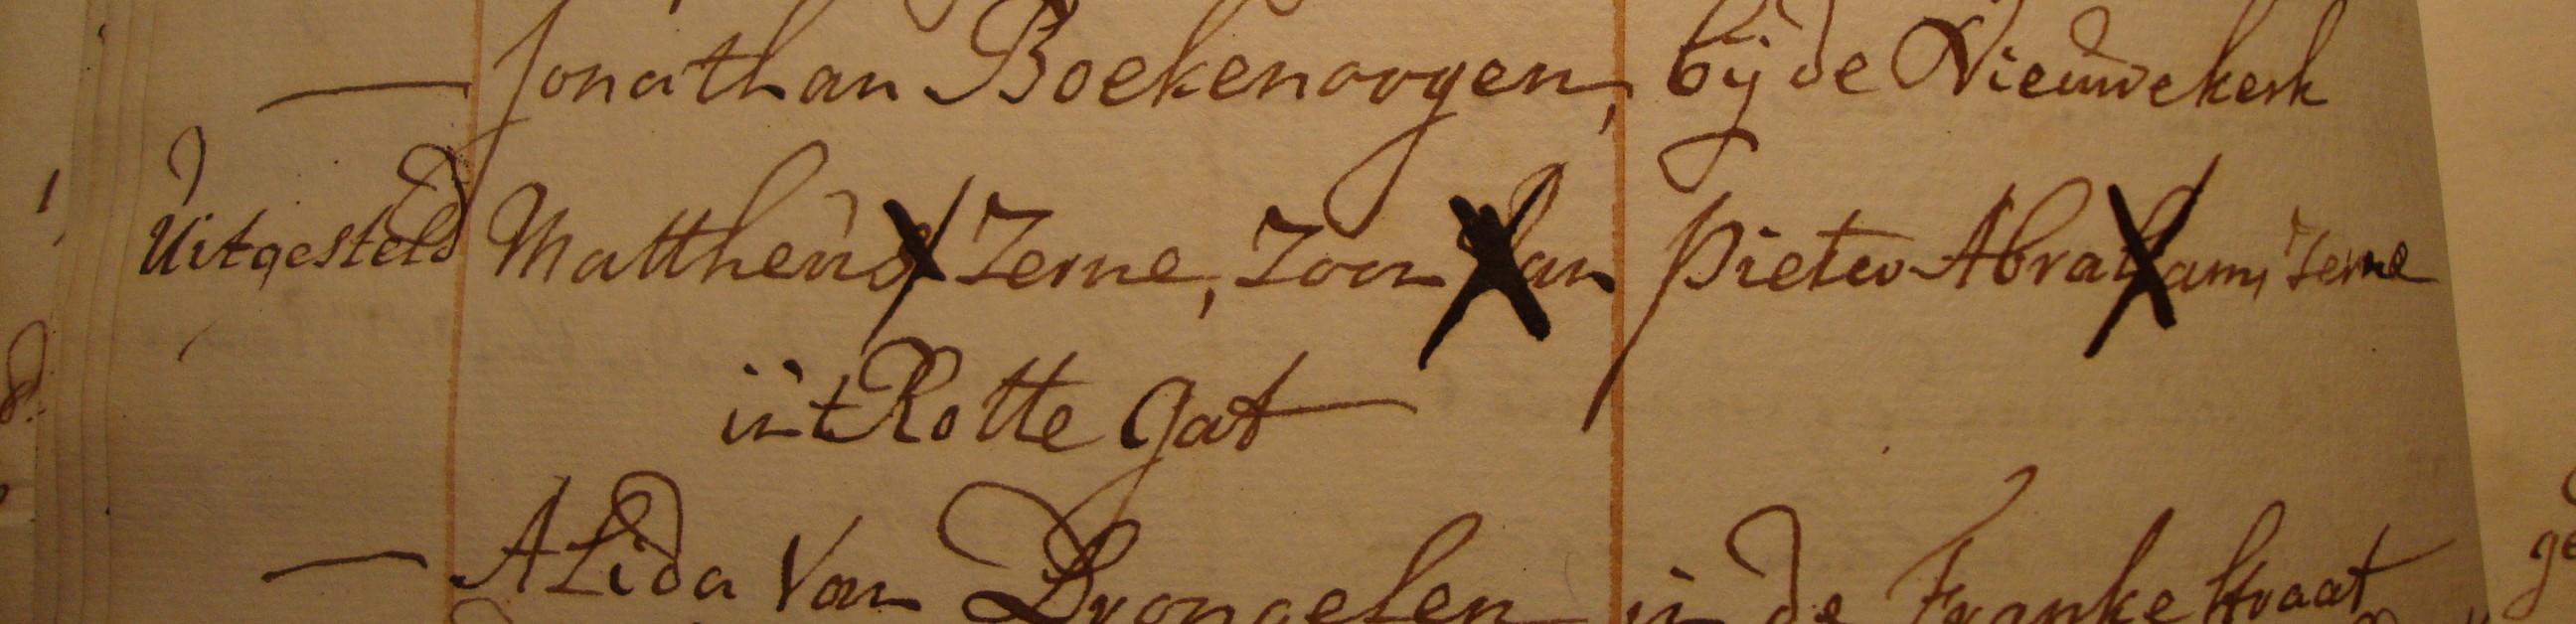 — Jonathan Boekenoogen, bij de Nieuwekerk
Uitgesteld Mattheus Zerne, Zoon Van Pieter Abraham Zerne
int Rotte gat —
— Alida Van Drongelen in de Frankestraat